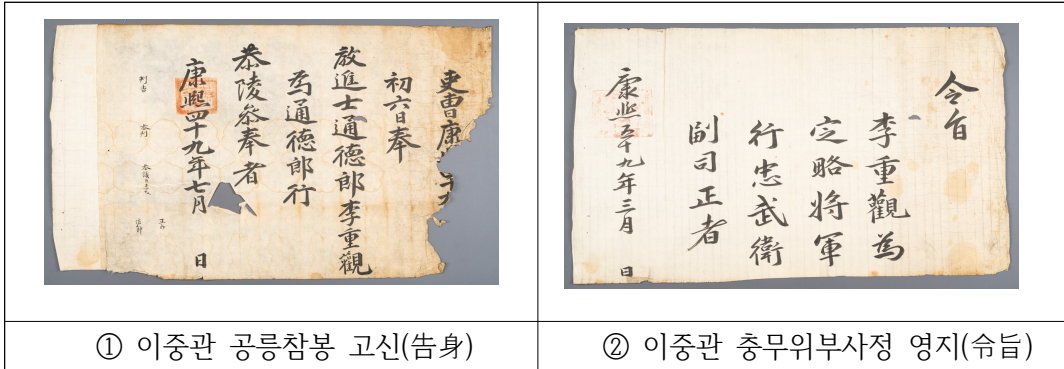 吏曹康
初六日奉
敎進士通德郎李重觀
為通德郎行
恭陵叅奉者
康熙四十九年七月 日
令旨
李重觀為
定略將軍
行忠武衛
副司正者
康熙五十九年三月 日
① 이중관 공릉참봉 고신(告身)
② 이중관 충무위부사정 영지(令旨)